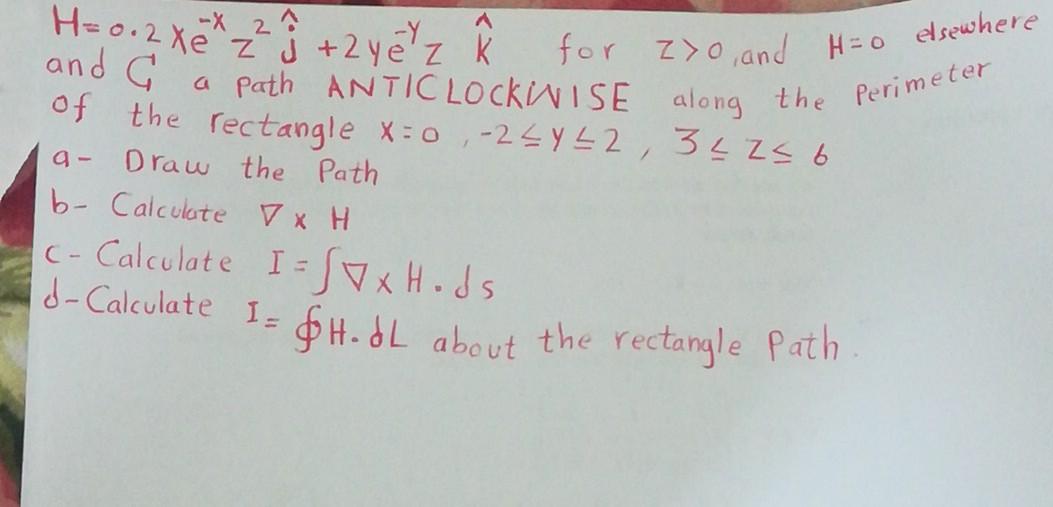 H = 0.2 x e^{-x} z² ĵ + 2 y e^{-y} z k̂ for z > 0, and H = 0 elsewhere
and C a path ANTICLOCKWISE along the perimeter
of the rectangle x = 0, -2 ≤ y ≤ 2, 3 ≤ z ≤ 6
a- Draw the Path
b- Calculate ∇ x H
c- Calculate I = ∫ ∇ x H . ds
d- Calculate I = ∮ H . dL about the rectangle Path.